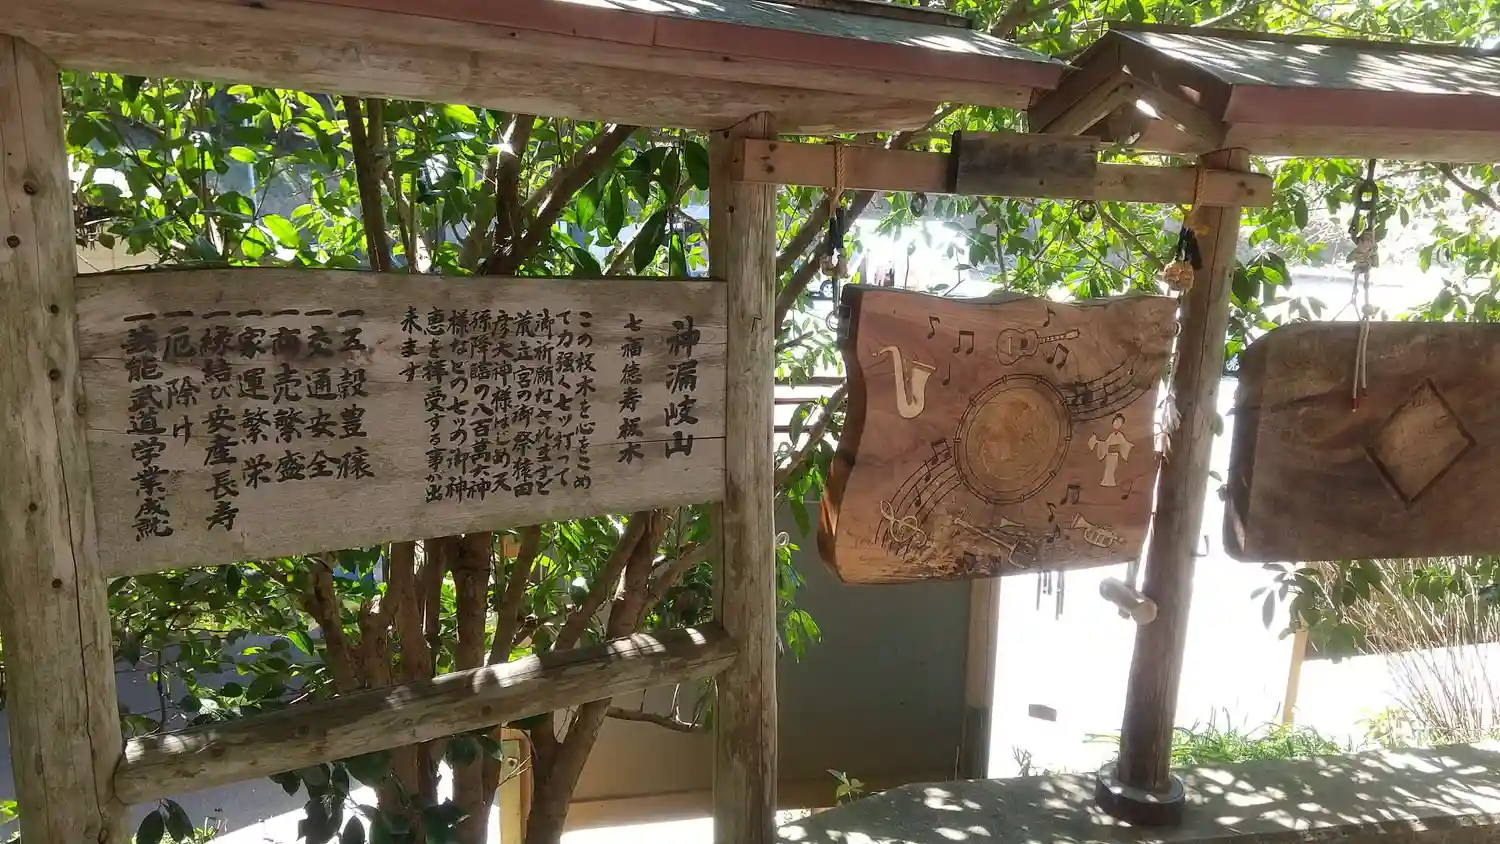 神漏岐山
七福徳寿板木
この板木を心をこめ
て力強く七ッ打って
御祈願なされますと
荒立宮の御祭猿田
彦大神様はじめ天
孫降臨の八百萬大神
様などの七ッの御神
恵を拝受する事が出
来ます
一五穀豊穣
一交通安全
一商売繁盛
一家運繁栄
一縁結び安産長寿
一厄除け
一芸能武道学業成就